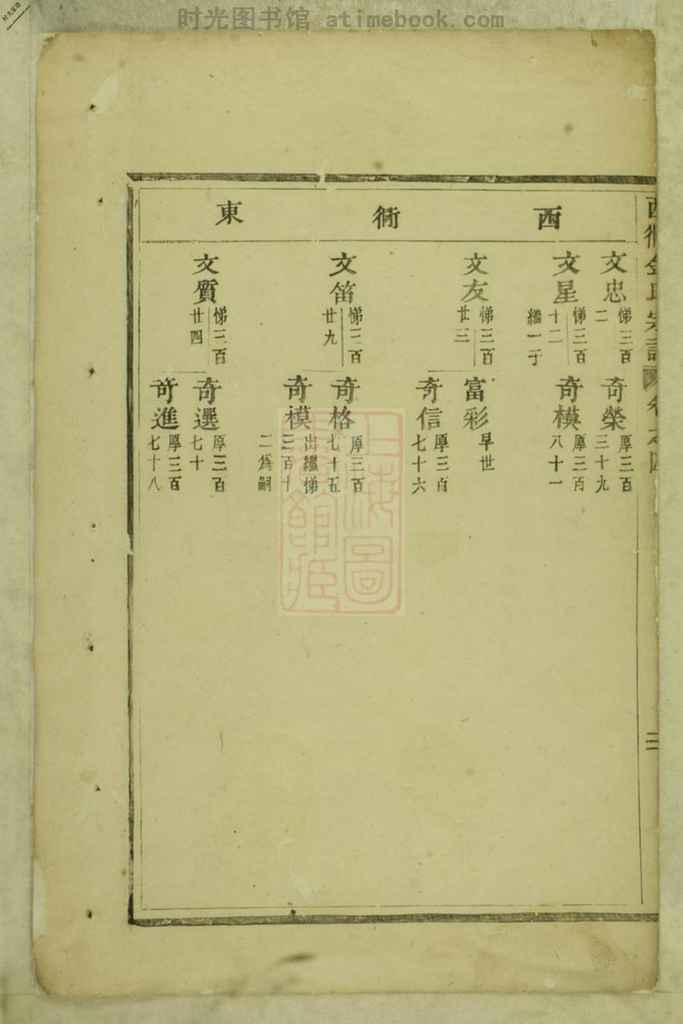 时光图书馆 atimebook.com
西衕東
文忠
悌三百
二
文星
悌三百
十二
繼一子
文友
悌三百
廿三
文笛
悌三百
廿九
文質
悌三百
廿四
奇榮
厚三百
三十九
奇模
厚三百
八十一
富彩
早世
奇信
厚三百
七十六
奇格
厚三百
七十五
奇模
出繼悌
三百十
二為嗣
奇選
厚三百
七十
奇進
厚三百
七十八
三